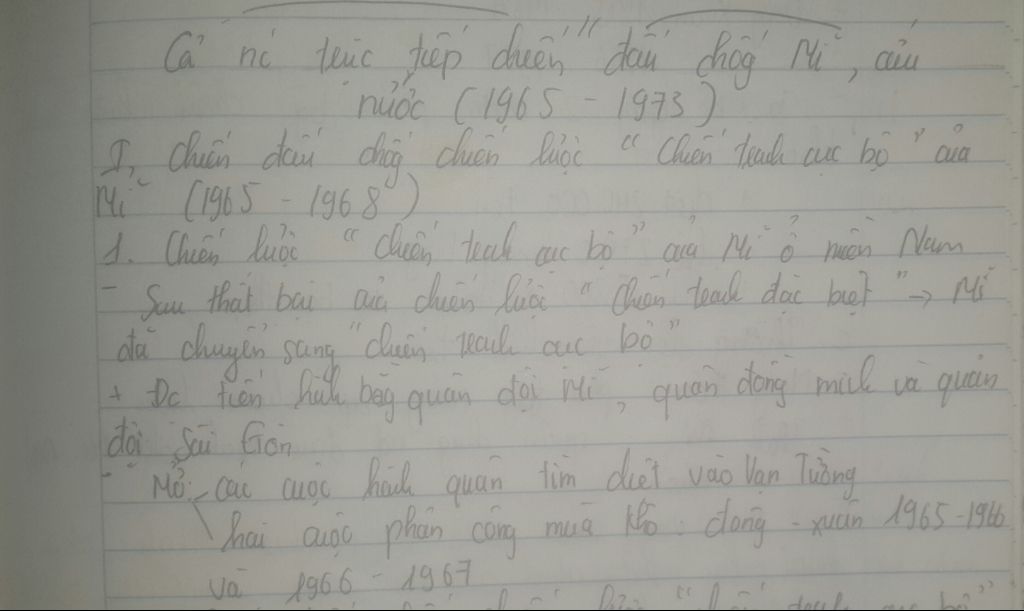 Cả nc trực tiếp chiến đấu chốg Mĩ, cứu
nước (1965 - 1973)
I, Chiến đấu chốg chiến lược "Chiến tranh cục bộ" của
Mĩ (1965 - 1968)
1. Chiến lược "chiến tranh cục bộ" của Mĩ ở miền Nam
- Sau thất bại của chiến lược "Chiến tranh đặc biệt" -> Mĩ
đã chuyển sang "chiến tranh cục bộ"
+ Đc tiến hành bằg quân đội Mĩ, quân đồng minh và quân
đội Sài Gòn
- Mở: các cuộc hành quân tìm diệt vào Vạn Tường
hai cuộc phản công mùa khô: đông - xuân 1965-1966
và 1966 - 1967